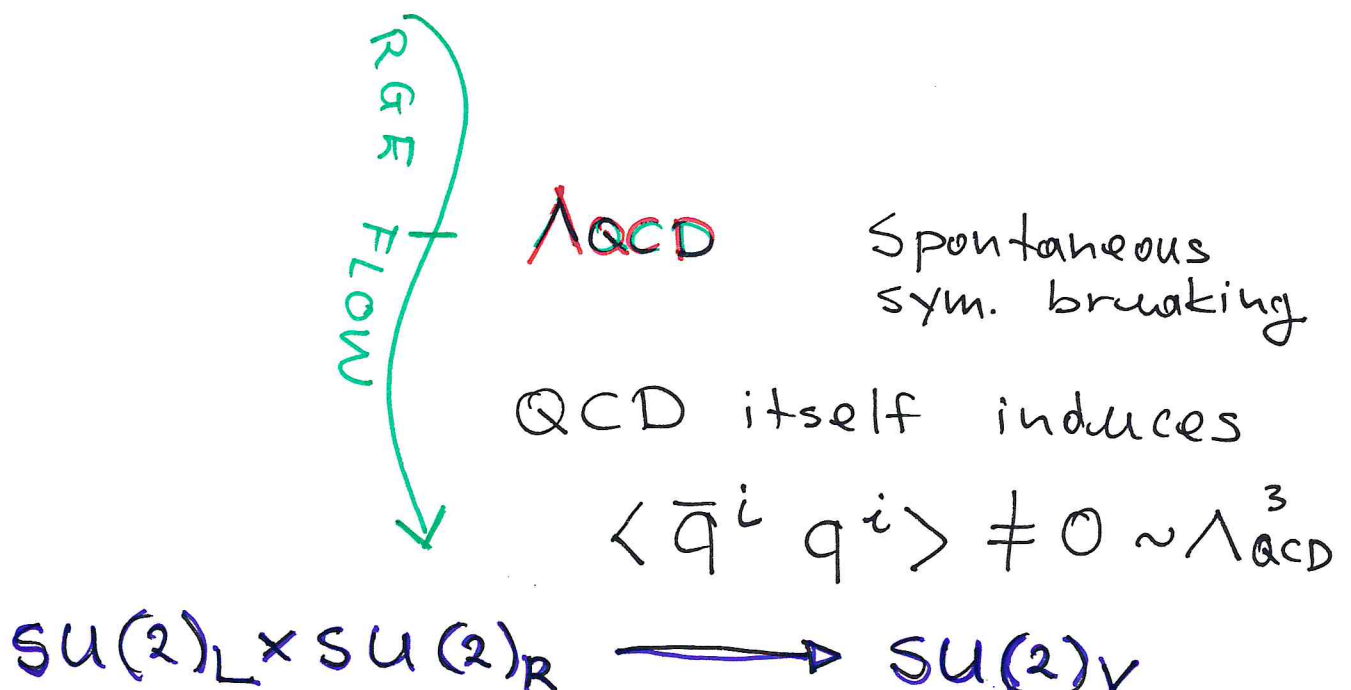 RGE FLOW
ΛQCD Spontaneous
sym. breaking
QCD itself induces
< q̄ⁱ qⁱ > ≠ 0 ~ Λ³QCD
SU(2)L × SU(2)R → SU(2)V